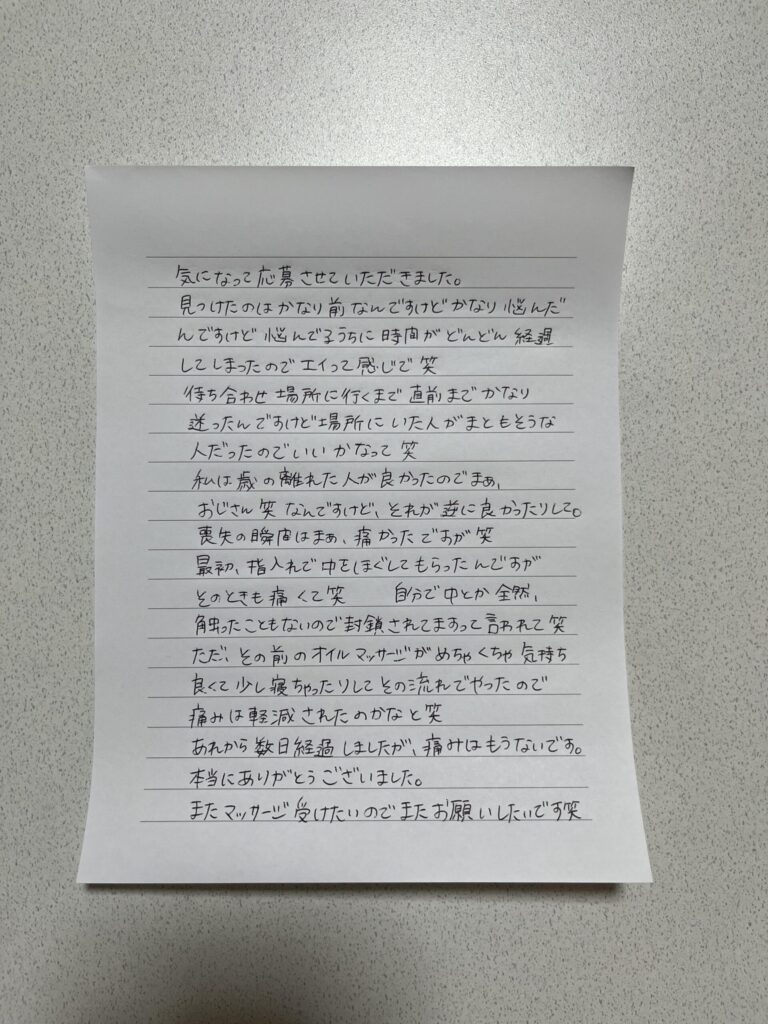 気になって応募させていただきました。
見つけたのはかなり前なんですけどかなり悩んだ
んですけど悩んでるうちに時間がどんどん経過
してしまったのでエイって感じで笑
待ち合わせ場所に行くまで直前までかなり
迷ったんですけど場所にいた人がまともそうな
人だったのでいいかなって笑
私は歳の離れた人が良かったのでまぁ、
おじさん笑なんですけど、それが逆に良かったりして。
喪失の瞬間はまぁ、痛かったですが笑
最初、指入れで中をほぐしてもらったんですが
そのときも痛くて笑 自分で中とか全然、
触ったこともないので封鎖されてますって言われて笑
ただ、その前のオイルマッサージがめちゃくちゃ気持ち
良くて少し寝ちゃったりしてその流れでやったので
痛みは軽減されたのかなと笑
あれから数日経過しましたが、痛みはもうないです。
本当にありがとうございました。
またマッサージ受けたいのでまたお願いしたいです笑